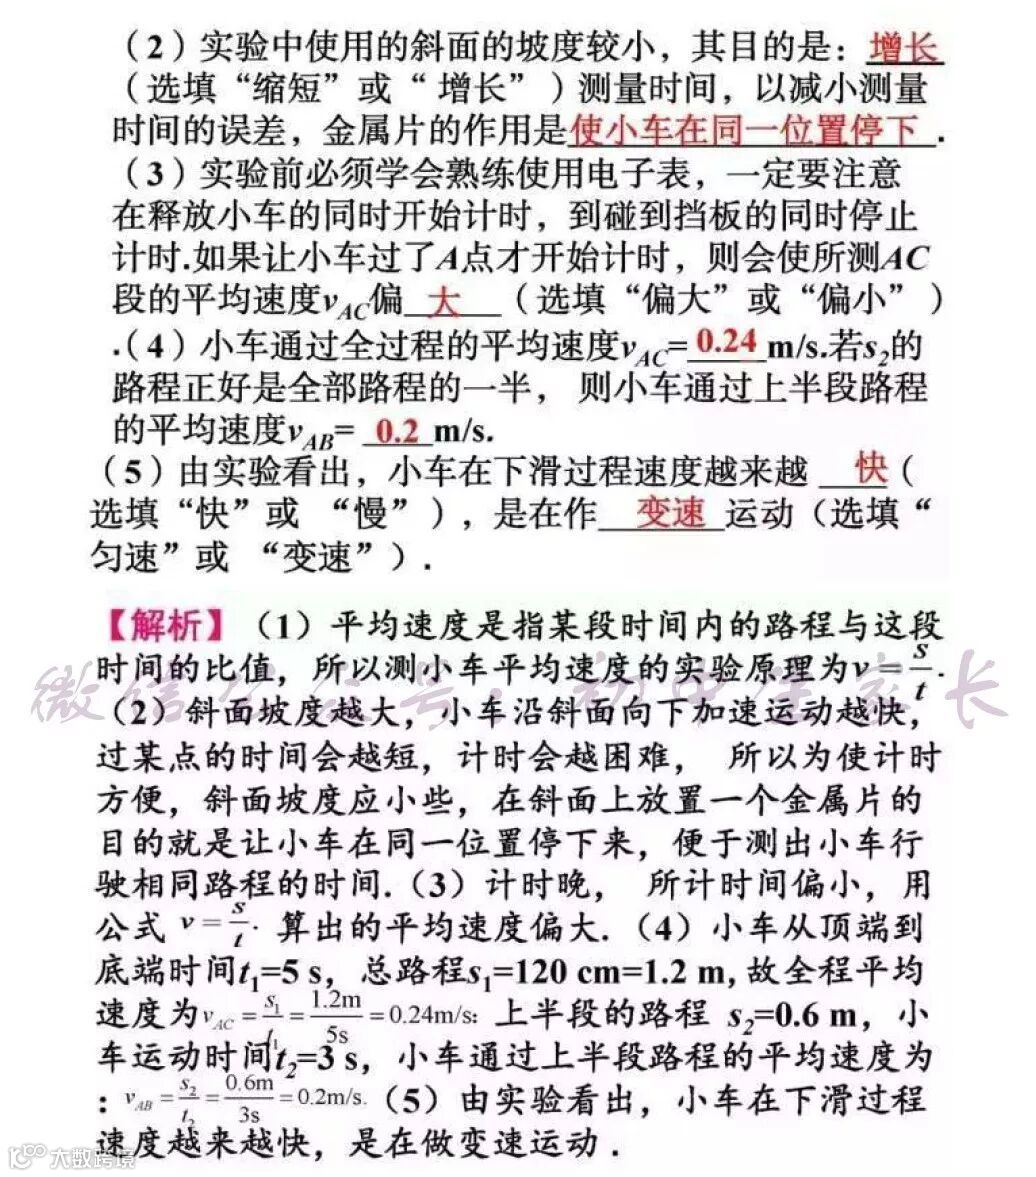 （2）实验中使用的斜面的坡度较小，其目的是：增长
（选填“缩短”或“ 增长”）测量时间，以减小测量
时间的误差，金属片的作用是使小车在同一位置停下.
（3）实验前必须学会熟练使用电子表，一定要注意
在释放小车的同时开始计时，到碰到挡板的同时停止
计时.如果让小车过了A点才开始计时，则会使所测AC
段的平均速度vAC偏 大 （选填“偏大”或“偏小”）
.（4）小车通过全过程的平均速度vAC=0.24 m/s.若s2的
路程正好是全部路程的一半， 则小车通过上半段路程
的平均速度vAB= 0.2 m/s.
（5）由实验看出，小车在下滑过程速度越来越 快（
选填“快”或 “慢”），是在作 变速 运动（选填“
匀速”或 “变速”）.
【解析】（1）平均速度是指某段时间内的路程与这段
时间的比值，所以测小车平均速度的实验原理为v=s/t.
（2）斜面坡度越大，小车沿斜面向下加速运动越快，
过某点的时间会越短，计时会越困难， 所以为使计时
方便，斜面坡度应小些，在斜面上放置一个金属片的
目的就是让小车在同一位置停下来，便于测出小车行
驶相同路程的时间.（3）计时晚， 所计时间偏小，用
公式 v=s/t. 算出的平均速度偏大.（4）小车从顶端到
底端时间t1=5 s，总路程s1=120 cm=1.2 m,故全程平均
速度为vAC=s1/t1=1.2m/5s=0.24m/s: 上半段的路程 s2=0.6 m，小
车运动时间t2=3 s，小车通过上半段路程的平均速度为
：vAB=s2/t2=0.6m/3s=0.2m/s.（5）由实验看出，小车在下滑过程
速度越来越快，是在做变速运动.
大数跨境